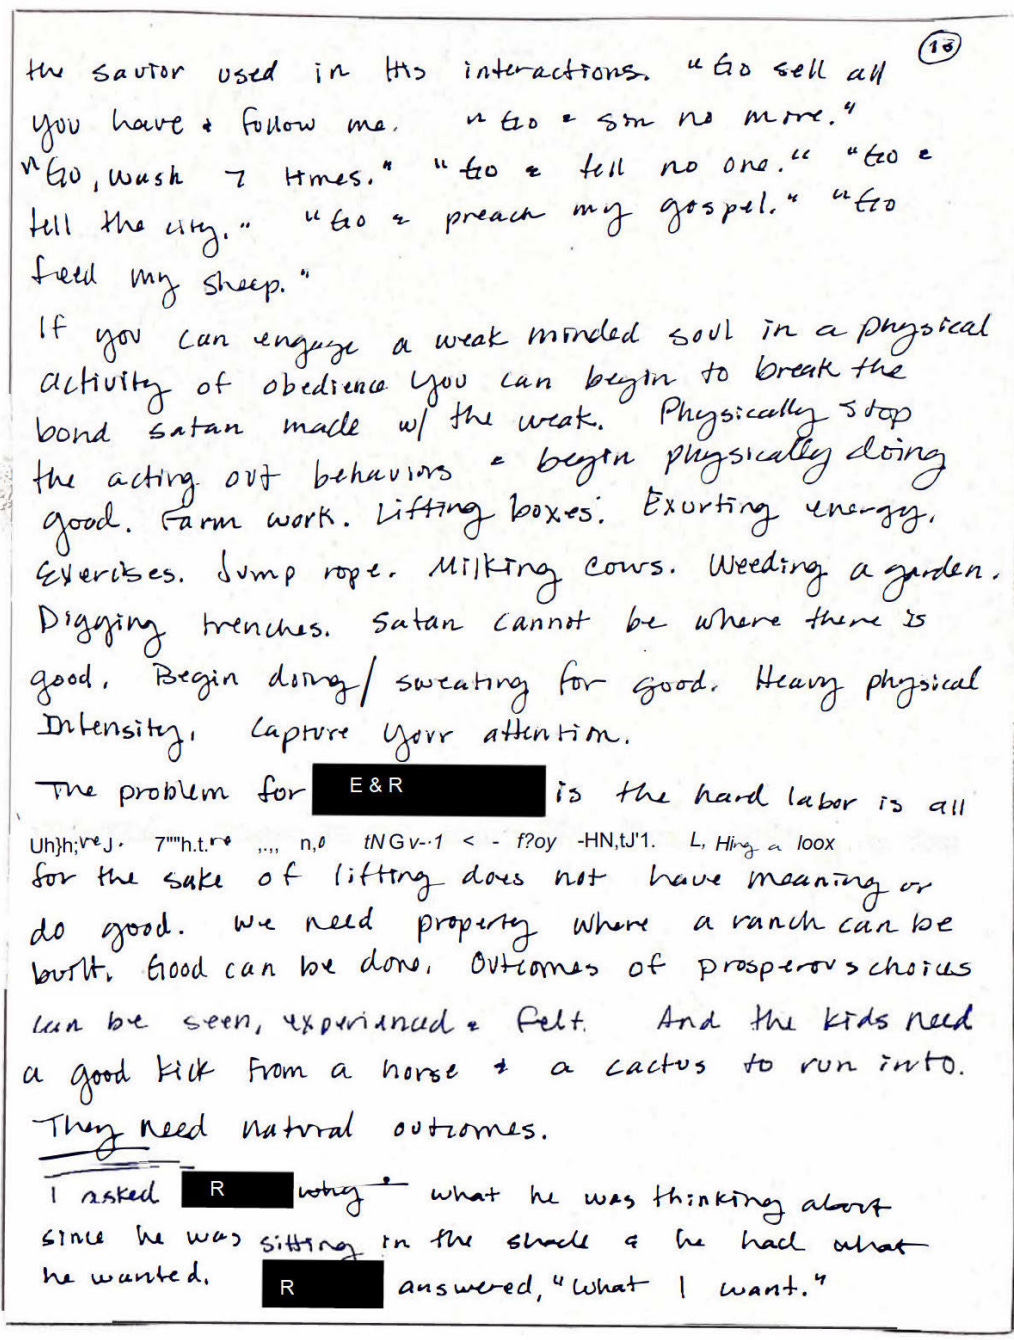 18
the savior used in His interactions. "Go sell all
you have & follow me. "Go & sin no more."
"Go, wash 7 times." "Go & tell no one." "Go &
tell the city." "Go & preach my gospel." "Go
feed my sheep."
If you can engage a weak minded soul in a physical
activity of obedience you can begin to break the
bond satan made w/ the weak. Physically stop
the acting out behaviors & begin physically doing
good. Farm work. Lifting boxes. Exurting energy.
Exercises. Jump rope. Milking cows. Weeding a garden.
Digging trenches. Satan cannot be where there is
good. Begin doing/sweating for good. Heavy physical
Intensity. Capture your attention.
The problem for E & R is the hard labor is all
Uh}h;re J. 7""h.t.re ,.,, n,o tNGv-·1 < - f?oy -HN,tJ'1. L, Hing a loox
for the sake of lifting does not have meaning or
do good. We need property where a ranch can be
built. Good can be done. Outcomes of prosperous choices
can be seen, experienced & felt. And the kids need
a good kick from a horse & a cactus to run into.
They need natural outcomes.
I asked R why what he was thinking about
since he was sitting in the shade & he had what
he wanted. R answered, "What I want."